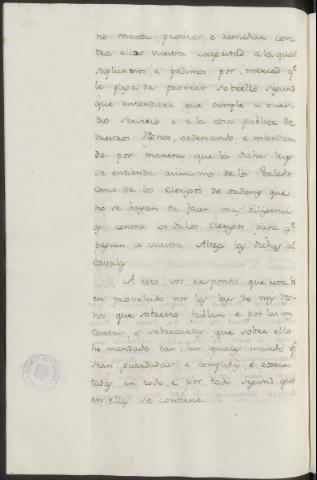 no manda proveer e remediar con
tra ellas vuestra magestad a la qual
suplicamos e pedimos por merced q
le plega de proveer sobrello segund
que entendiere que cumple a vues
tro servicio e a la cosa publica de
vuestros Rgnos, ordenando e mandan
do por manera que la dicha ley
se entienda asimismo de los Perlados
como de los clerigos de orden, que
no se hayan de facer mas diligenci
as contra los dichos clerigos para q
paguen a vuestra Alteza las dichas al
cavalas.
A esto vos respondo que esta bi
en proveido por las leyes de mis Rg
nos que sobresto fablan e por las mis
cartas, e sobrecartas que sobre ello
he mandado dar, las quales mando q
sean guardadas e complidas e execu
tadas en todo e por todo segund que
en ellas se contiene.